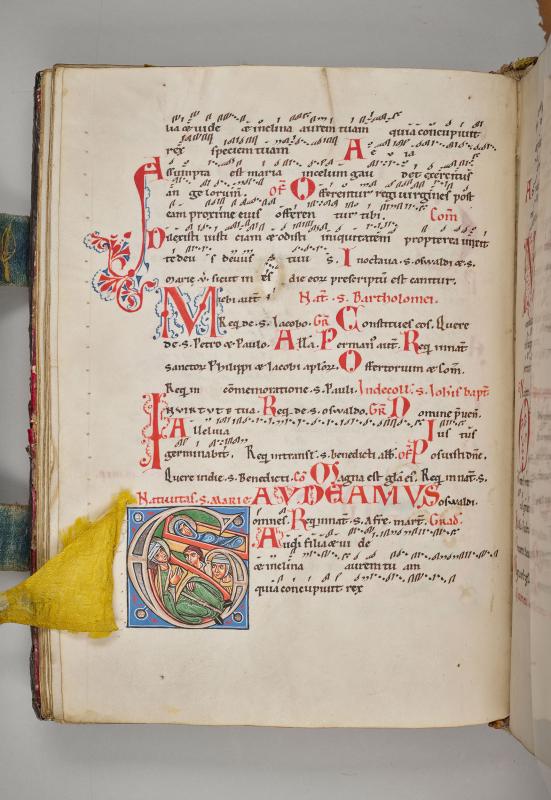 lia & uide & inclina aurem tuam quia concupiuit
rex speciem tuam A e u ia
Assumpta est maria in celum gau det exercitus
an gelorum. of Offerentur regi uirgines post
eam proxime eius offeren tur tibi. Com
Dilexisti iusti ciam & odisti iniquitatem propterea unxit
te deus deus tuus In octaua .s. oswaldi & s.
marie sicut in die eor prescriptu est cantur.
Michi aut Nat. s. Bartholomei.
Req. de .s. Iacobo. Gr Constitues eos. Quere
de .s. Petro & Paulo. Alla. Per manu aut. Req. in nat
sanctor Philippi & Iacobi aplor. Offertorium & Com.
Req. in comemoratione .s. Pauli. In decoll. s. Iohis bapt
In uirtute tua. Req. de .s. oswaldo. Gr Domine preuen.
Alleluia Ius tus
germinabit. Req. in transit .s. benedicti abb. of Posuisti dne.
Quere in die .s. Benedicti. Co Magna est gla ei. Req. in nat .s.
Natiuitas .s. Marie GAVDEAMVS oswaldi.
omnes. Req. in nat .s. Afre mart. Grad.
Audi filia & ui de
& inclina aurem tu am
quia concupiuit rex